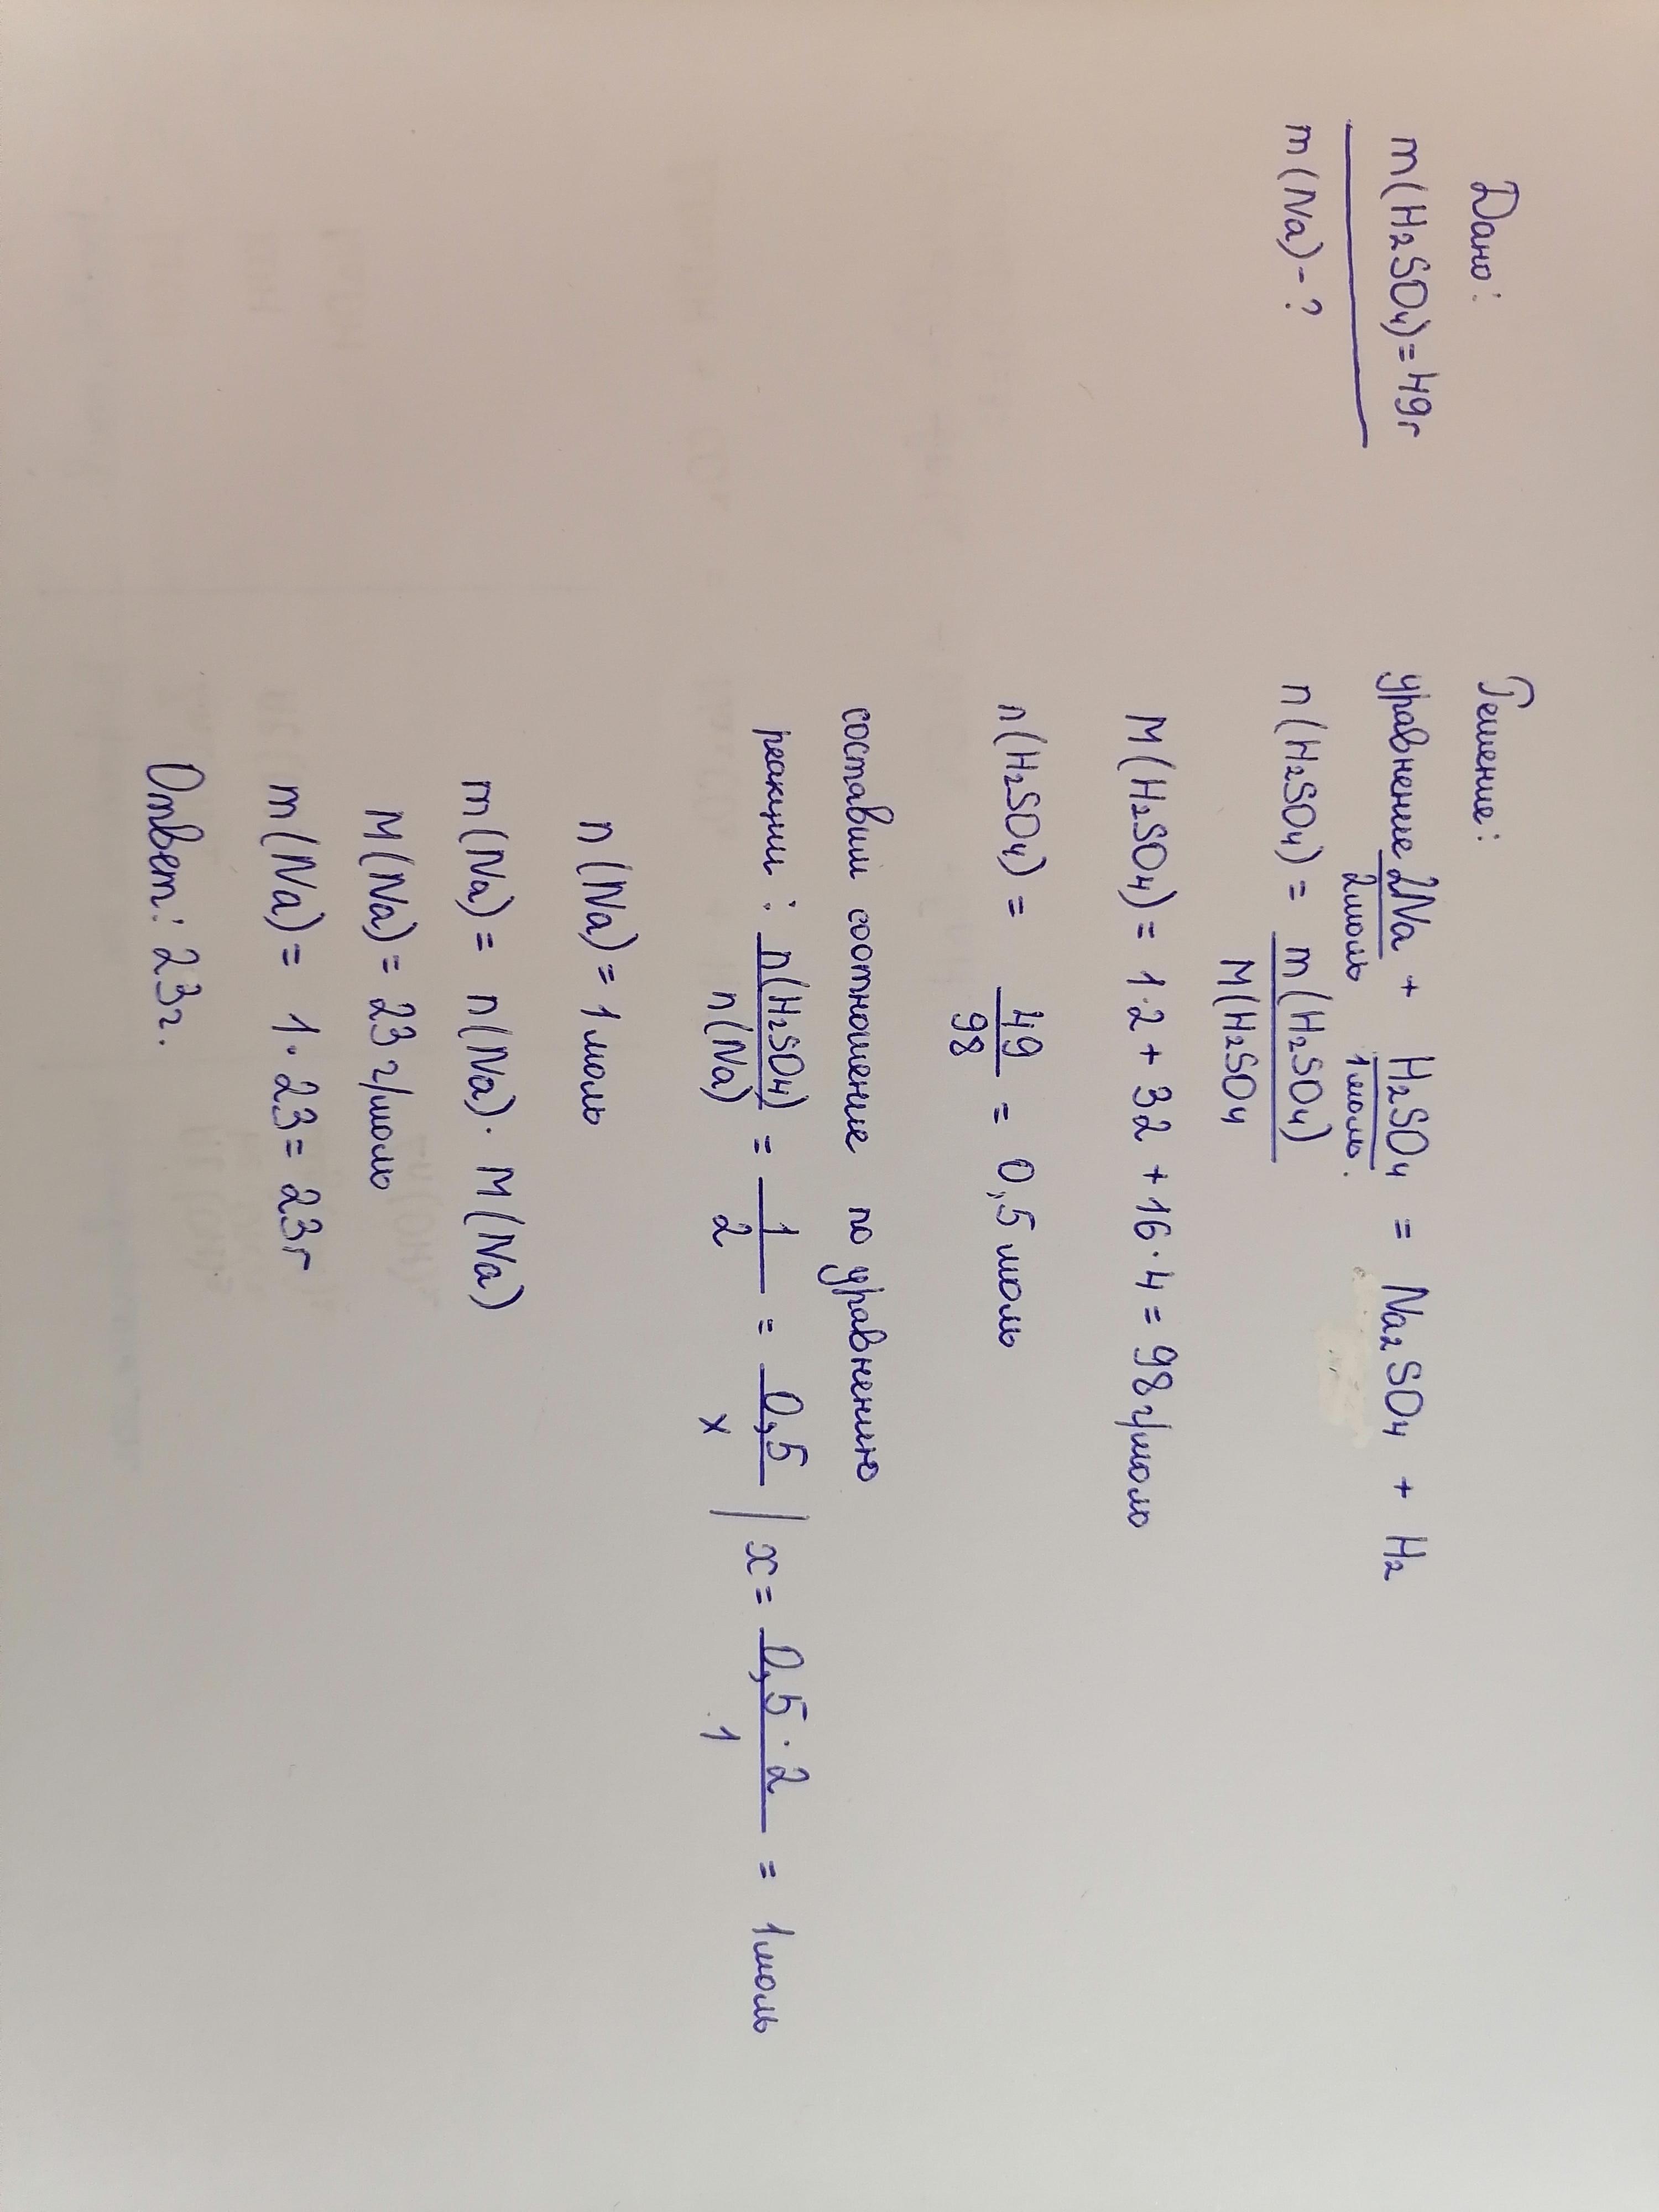 Дано:
m(H₂SO₄)=49г
m(Na)-?
Решение:
уравнение 2Na + H₂SO₄ = Na₂SO₄ + H₂
2моль 1моль.
n(H₂SO₄) = m(H₂SO₄)
M(H₂SO₄
M(H₂SO₄) = 1·2 + 32 + 16·4 = 98 г/моль
n(H₂SO₄) = 49/98 = 0,5 моль
составим соотношение по уравнению
реакции: n(H₂SO₄)/n(Na) = 1/2 = 0,5/x | x = 0,5·2/1 = 1моль
n(Na) = 1моль
m(Na) = n(Na)·M(Na)
M(Na) = 23 г/моль
m(Na) = 1·23 = 23г
Ответ: 23г.